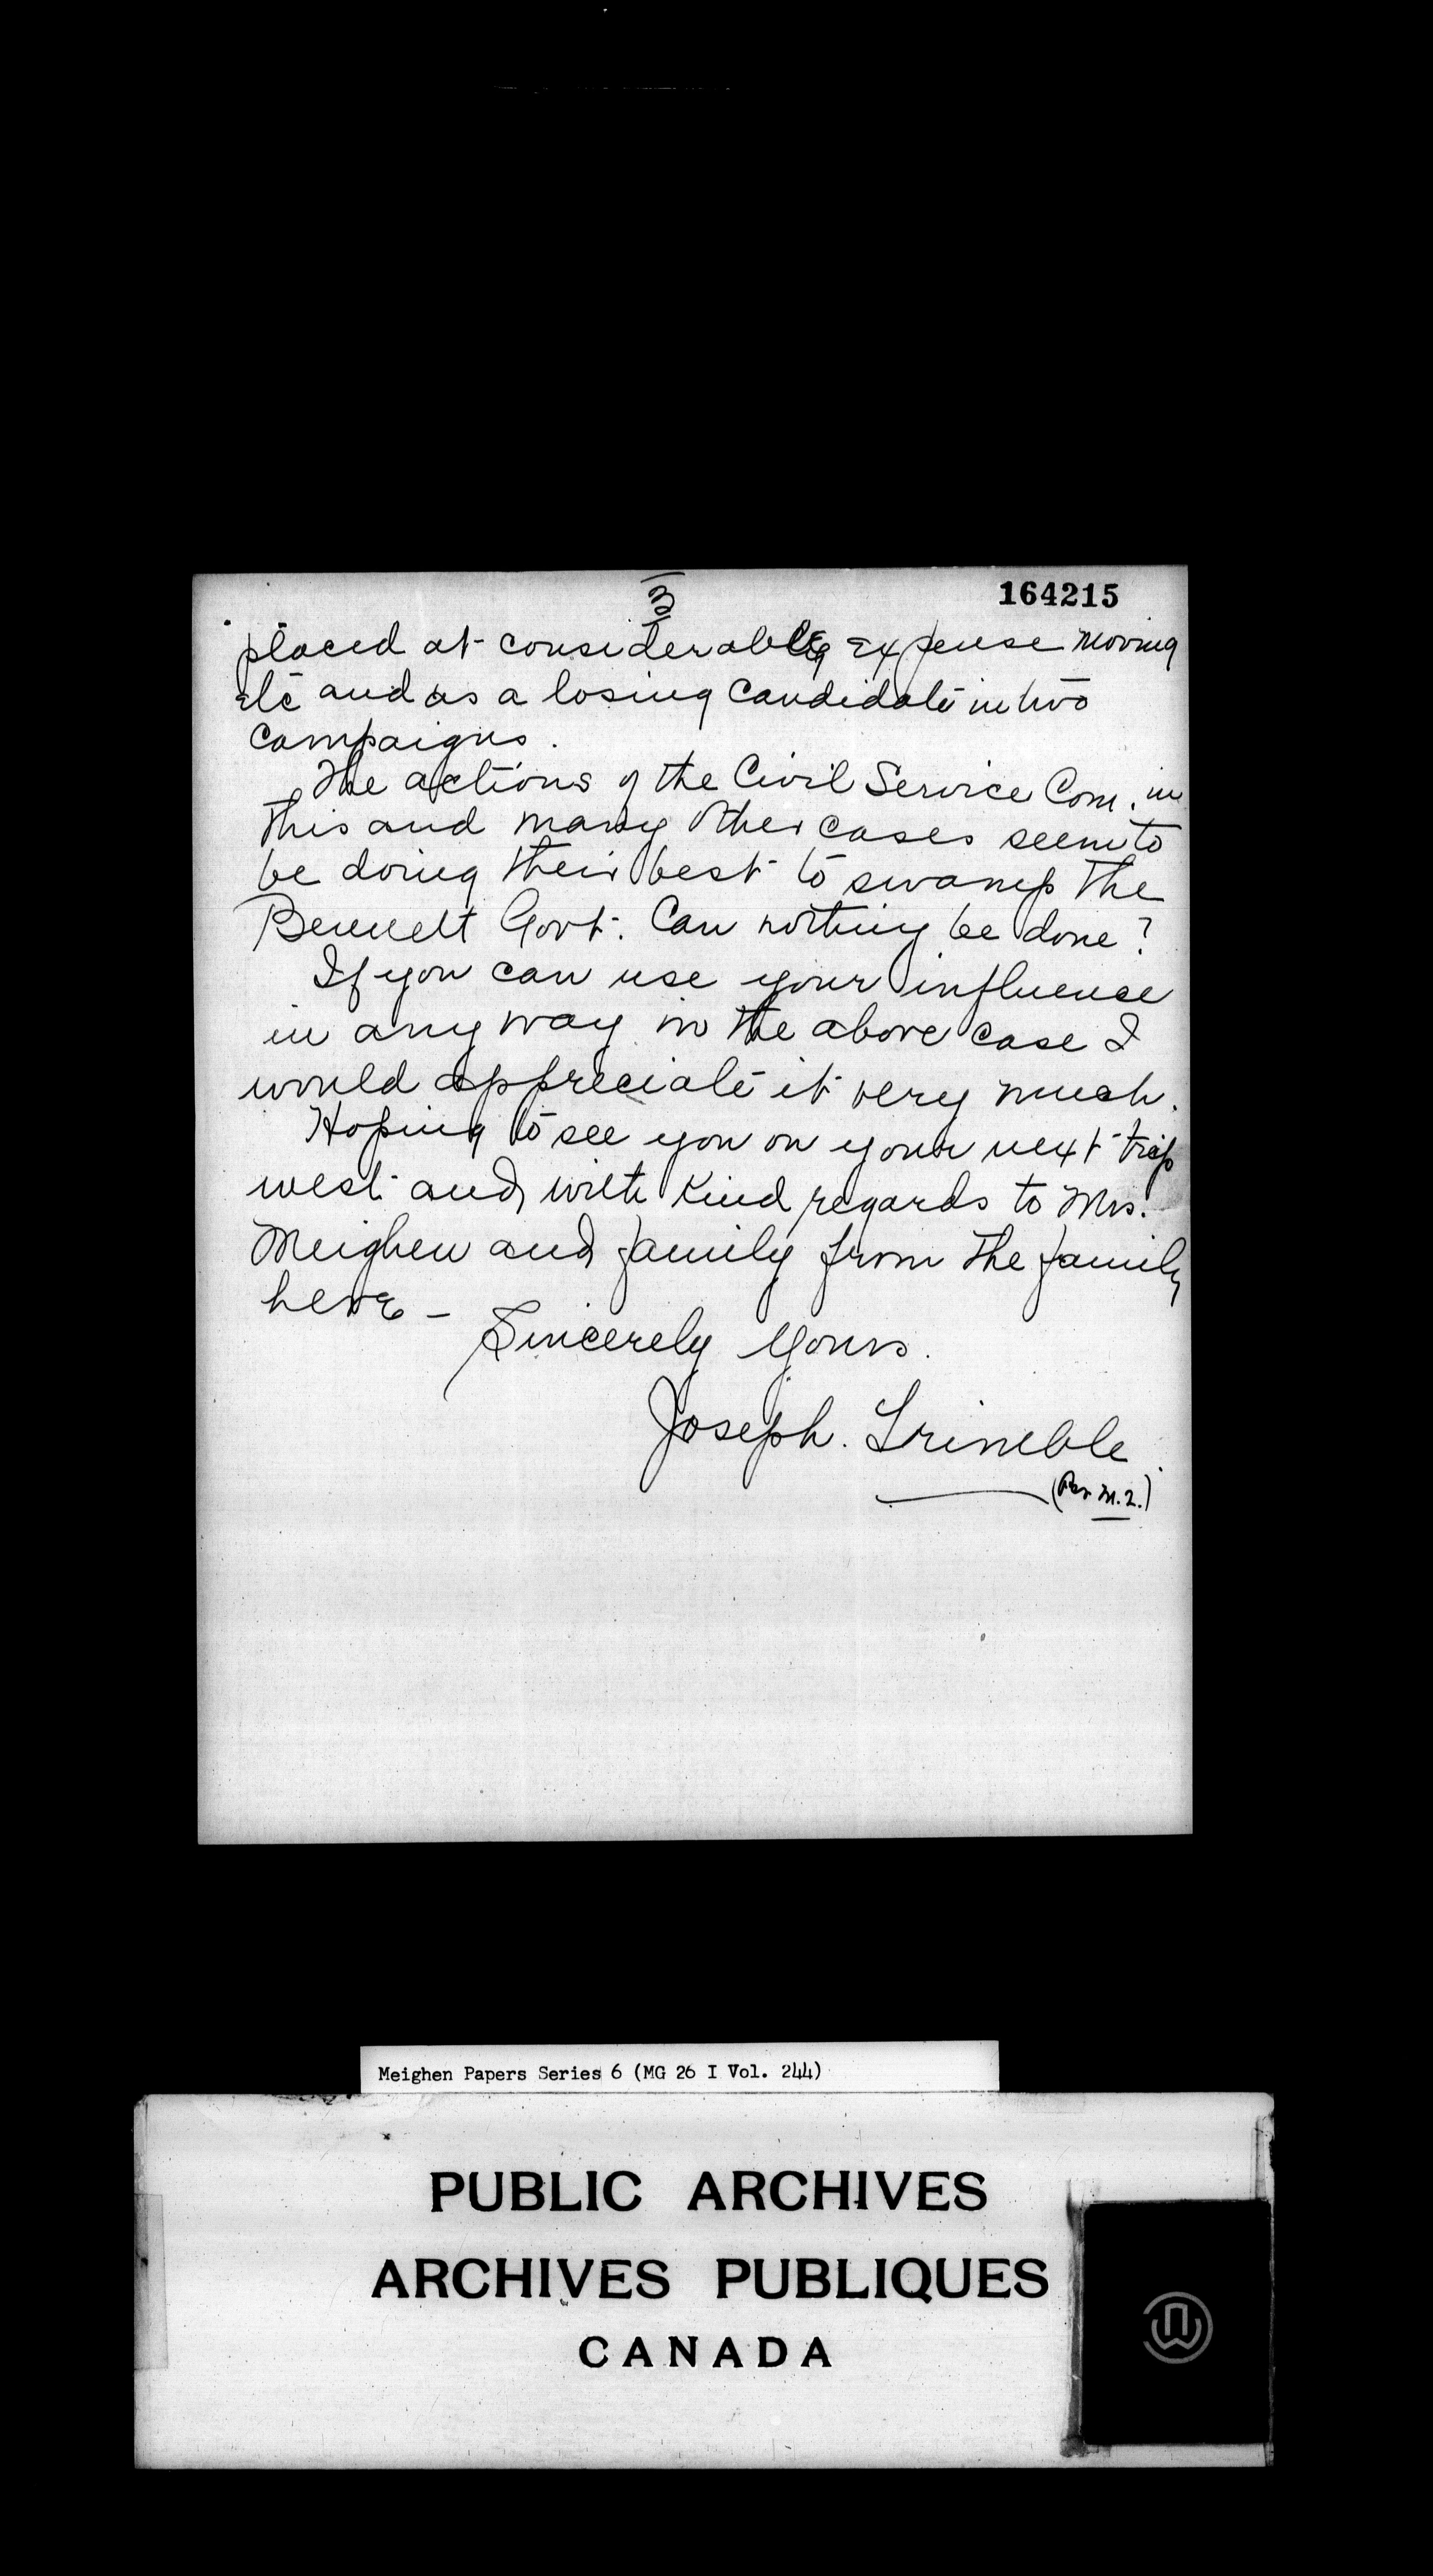 3
164215
placed at considerable expense moving
etc and as a losing candidate in two
campaigns.
The actions of the Civil Service Com. in
this and many other cases seem to
be doing their best to swamp the
Bennett Govt. Can nothing be done?
If you can use your influence
in any way in the above case I
would appreciate it very much.
Hoping to see you on your next trip
west and with kind regards to Mrs.
Meighen and family from the family
here -
Sincerely Yours.
Joseph. Trimble
(Per M.T.)
Meighen Papers Series 6 (MG 26 I Vol. 244)
PUBLIC ARCHIVES
ARCHIVES PUBLIQUES
CANADA